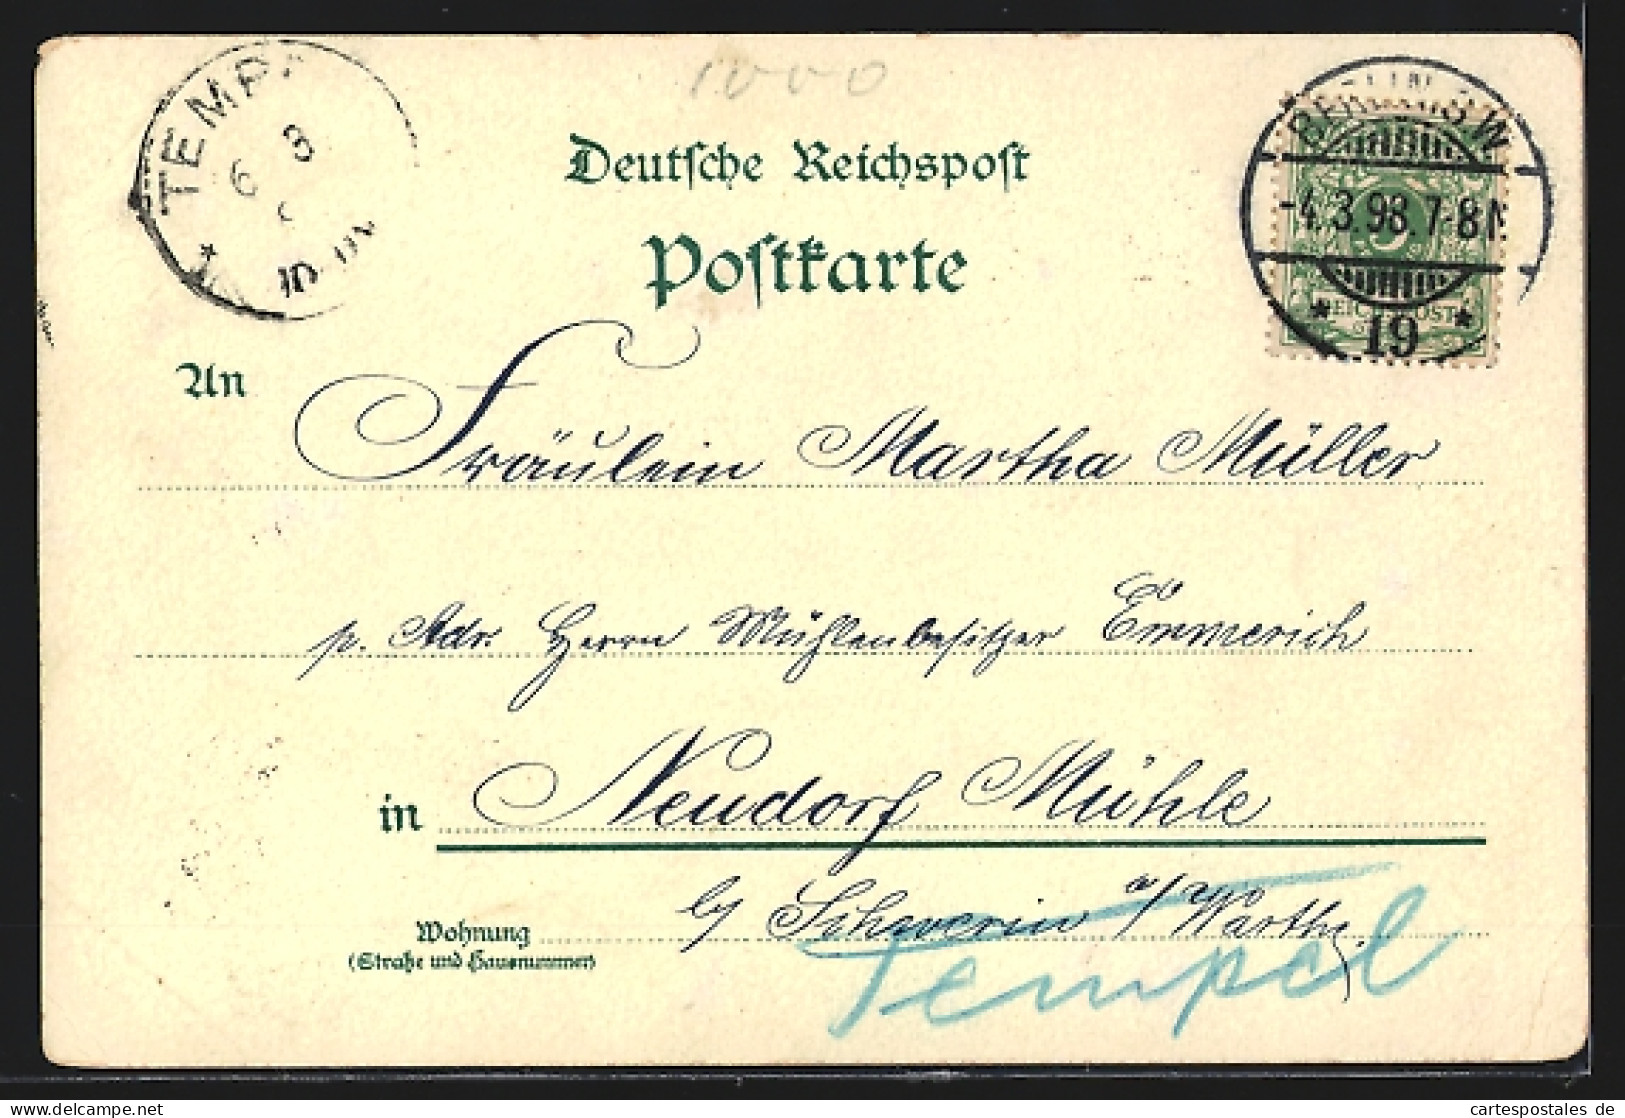 1000
TEMP
6 3
Deutsche Reichspost
Postkarte
BERLIN SW
-4.3.98.7-8
5
REICHSPOST
* 19 *
An
Fräulein Martha Müller
p. Adr. Herrn Mühlenbesitzer Emmerich
in Neudorf Mühle
b/ Schwerin a/Warthe
Wohnung
(Straße und Hausnummer)
Tempel
cartespostales.de